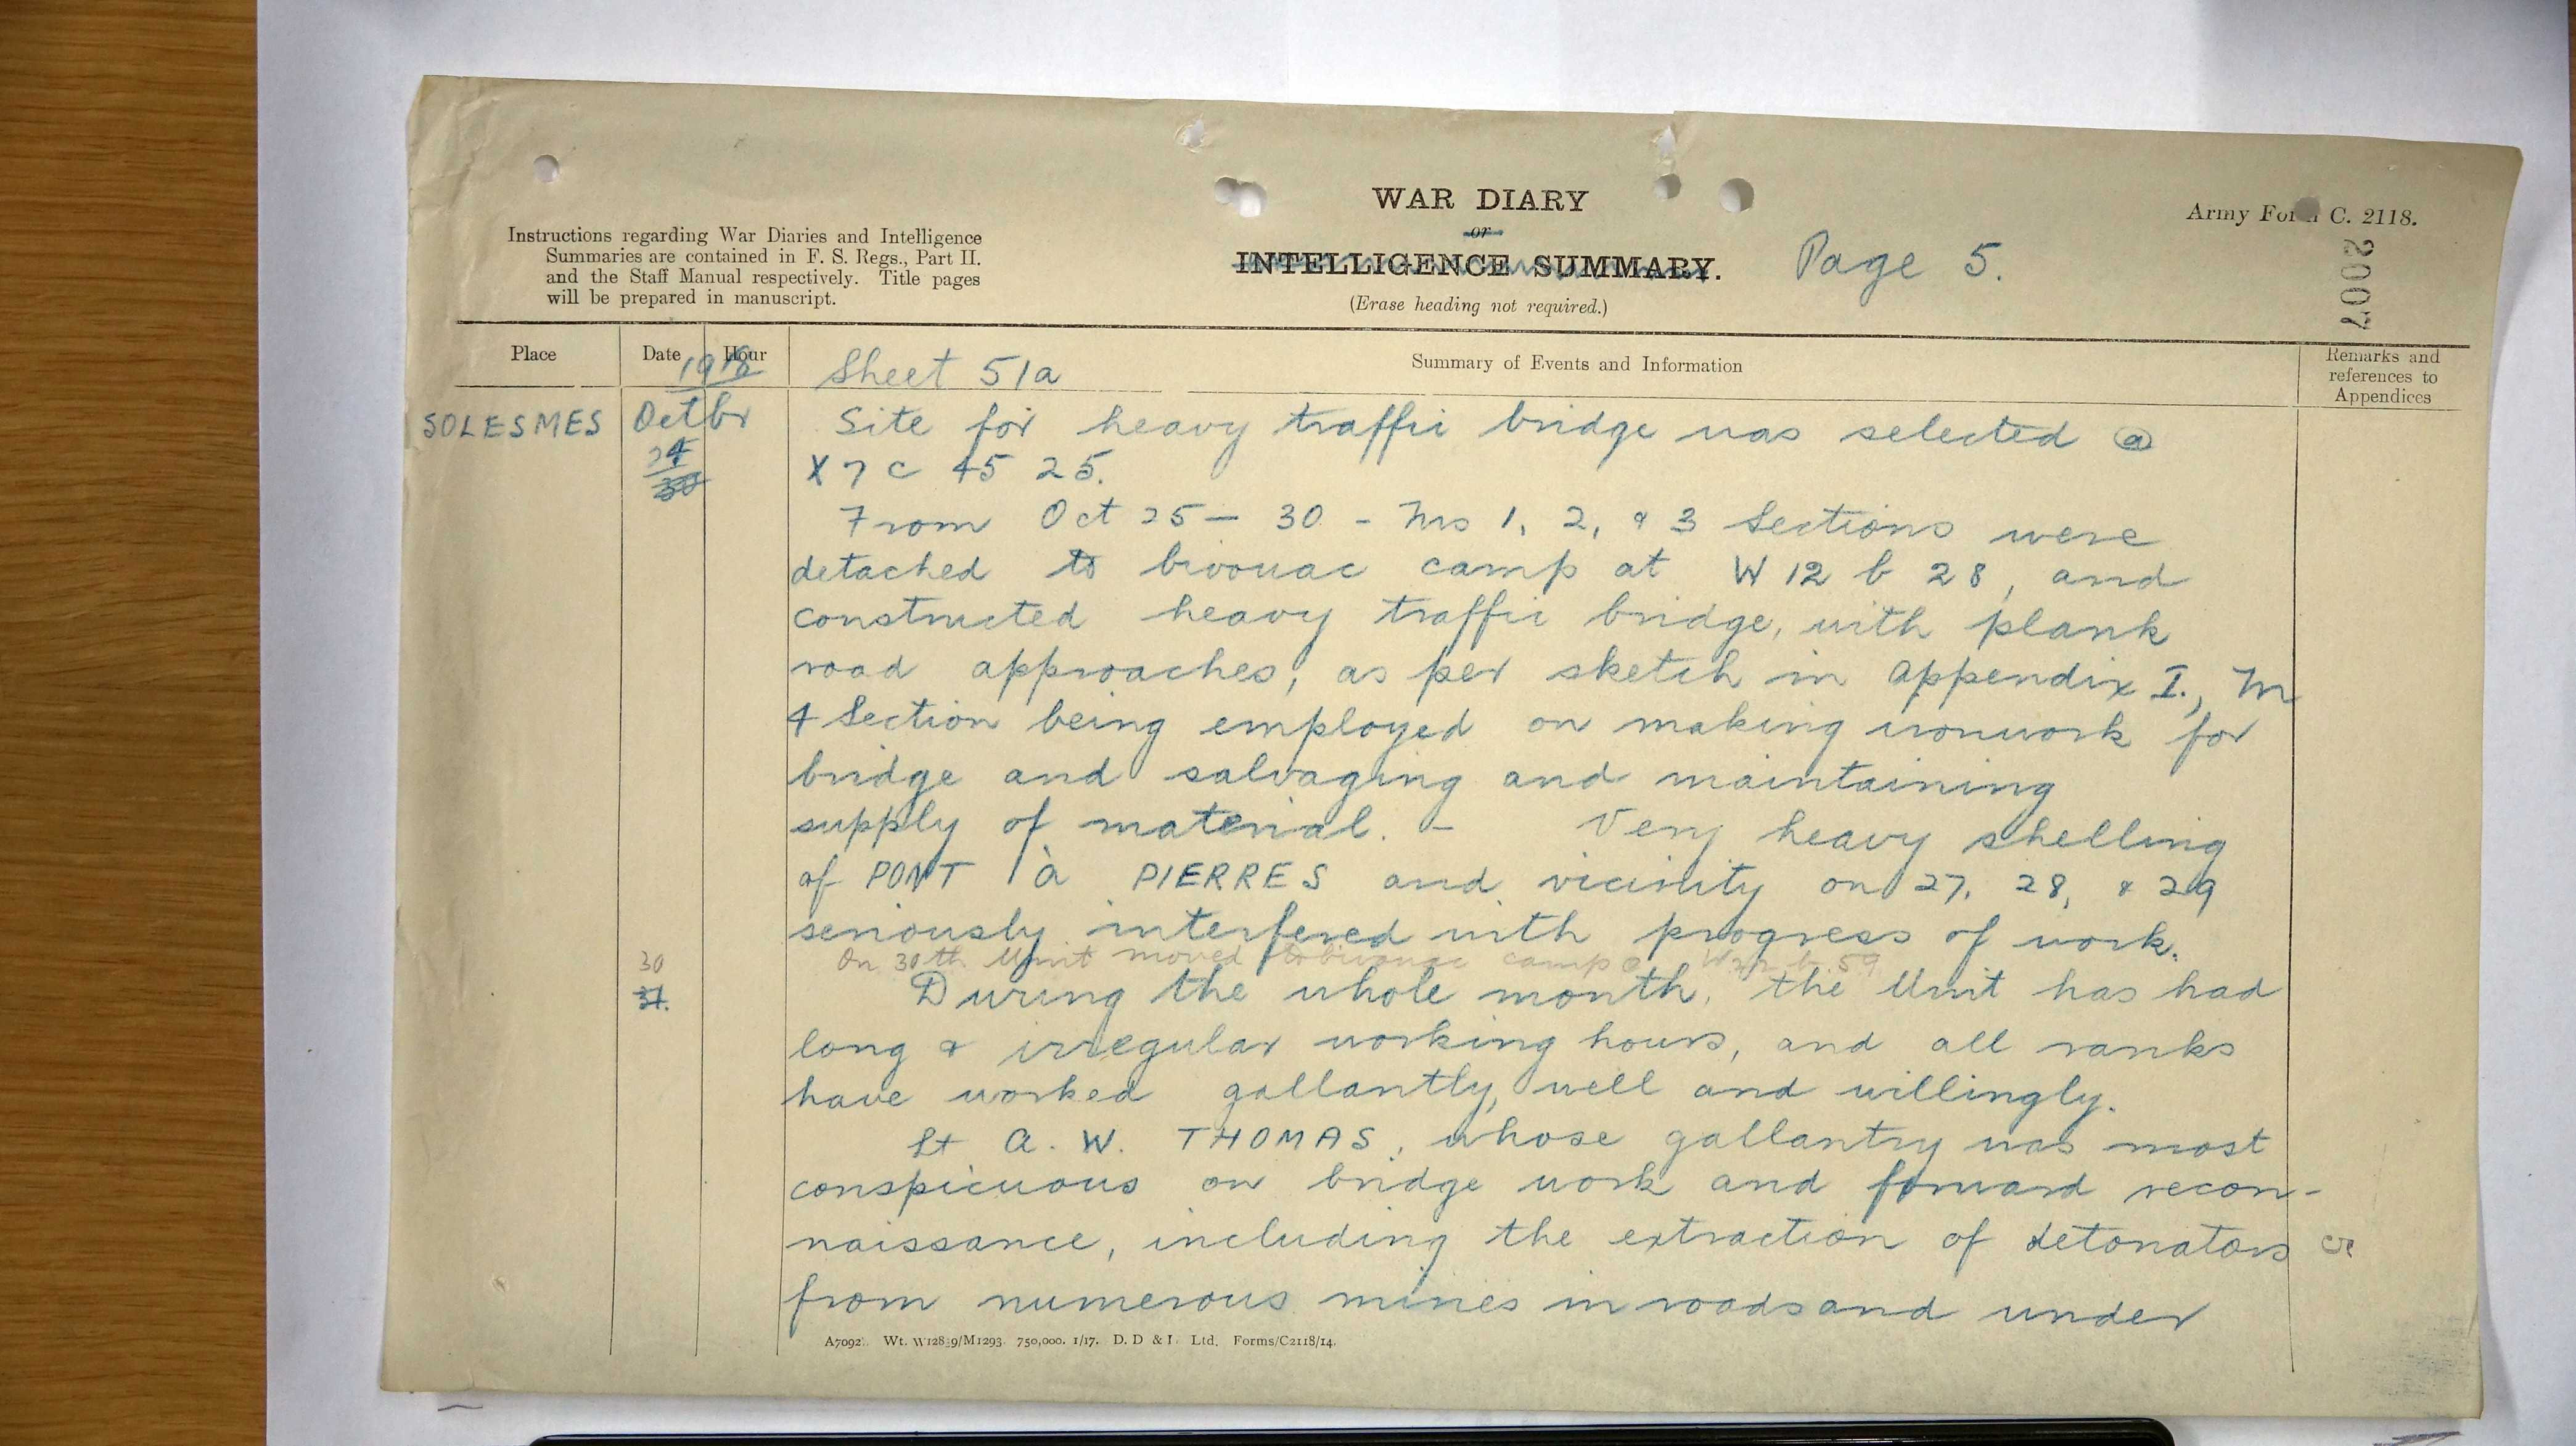 WAR DIARY
or
INTELLIGENCE SUMMARY.
(Erase heading not required.)
Page 5.
Army Form C. 2118.
2007
Instructions regarding War Diaries and Intelligence
Summaries are contained in F. S. Regs., Part II.
and the Staff Manual respectively. Title pages
will be prepared in manuscript.
Place
Date
Hour
1918
Sheet 51a
Summary of Events and Information
Remarks and
references to
Appendices
SOLESMES
Octbr
24
30
Site for heavy traffic bridge was selected @
X 7 c 45 25.
From Oct 25 – 30 - Nos 1, 2, & 3 Sections were
detached to bivouac camp at W 12 b 28, and
constructed heavy traffic bridge, with plank
road approaches, as per sketch in Appendix I., No
4 Section being employed on making ironwork for
bridge and salvaging and maintaining
supply of material. – Very heavy shelling
of PONT à PIERRES and vicinity on 27, 28, & 29
seriously interfered with progress of work.
30
On 30th Unit moved to bivouac camp @ b. 59
31.
During the whole month, the Unit has had
long & irregular working hours, and all ranks
have worked gallantly, well and willingly.
Lt A. W. THOMAS, whose gallantry was most
conspicuous on bridge work and forward recon-
naissance, including the extraction of detonators
from numerous mines in roads and under
5
A7092. Wt. W12839/M1293 750,000. 1/17. D. D & L Ltd. Forms/C2118/14.